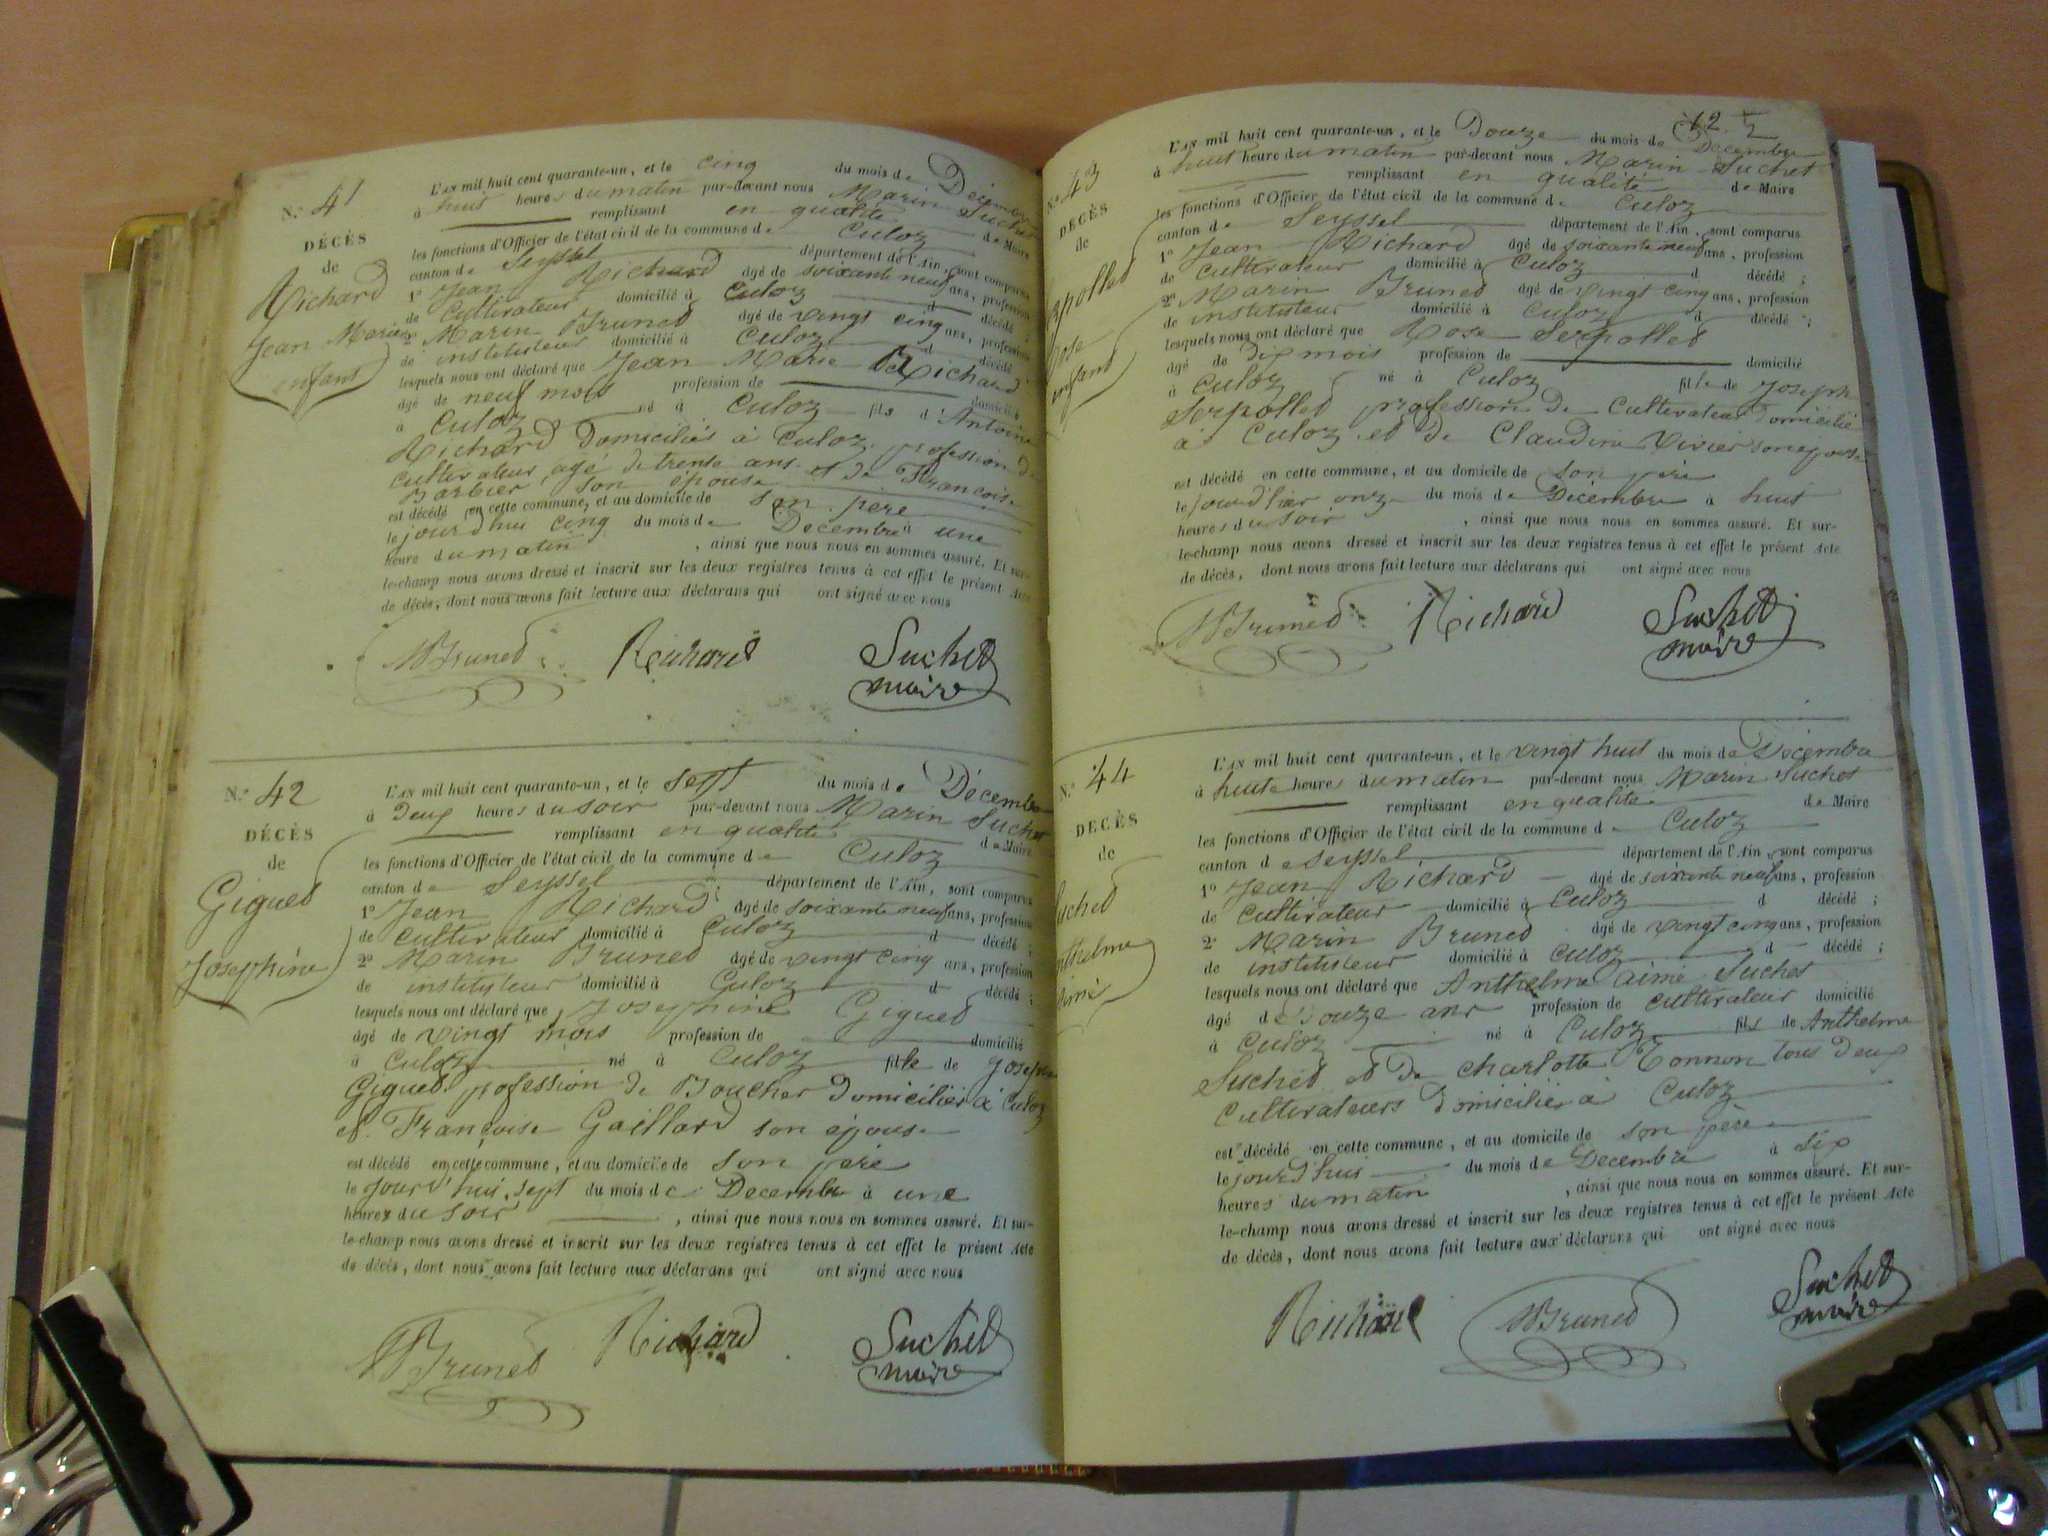 N.° 41
DÉCÈS
de
Richard
Jean Marie
enfant
L'AN mil huit cent quarante-un, et le cinq du mois de Décembre
à huit heures du matin par-devant nous Marin Suchet
remplissant en qualité de Maire
les fonctions d'Officier de l'état civil de la commune de Culoz
canton de Seyssel département de l'Ain, sont comparus
1° Jean Richard agé de soixante neuf ans, profession
de cultivateur domicilié à Culoz d décédé ;
2° Marin Brunet agé de vingt cinq ans, profession
de instituteur domicilié à Culoz d décédé ;
lesquels nous ont déclaré que Jean Marie Richard
agé de neuf mois profession de domicilié
à Culoz né à Culoz fils d'Antoine
Richard domiciliés à Culoz profession de
cultivateur, agé de trente ans et de Françoise
Barbier son épouse
est décédé en cette commune, et au domicile de son père
le jourd'hui cinq du mois de Décembre à une
heure du matin , ainsi que nous nous en sommes assuré. Et sur-
le-champ nous avons dressé et inscrit sur les deux registres tenus à cet effet le présent Acte
de décès, dont nous avons fait lecture aux déclarans qui ont signé avec nous
MBrunet Richard Suchet
maire
N.° 42
DÉCÈS
de
Giguet
Josephine
L'AN mil huit cent quarante-un, et le sept du mois de Décembre
à deux heures du soir par-devant nous Marin Suchet
remplissant en qualité de Maire
les fonctions d'Officier de l'état civil de la commune de Culoz
canton de Seyssel département de l'Ain, sont comparus
1° Jean Richard agé de soixante neuf ans, profession
de cultivateur domicilié à Culoz d décédé ;
2° Marin Brunet agé de vingt cinq ans, profession
de instituteur domicilié à Culoz d décédé ;
lesquels nous ont déclaré que Josephine Giguet
agé de vingt mois profession de domicilié
à Culoz né à Culoz fille de Joseph
Giguet profession de Boucher domicilié à Culoz
et Françoise Gaillard son épouse
est décédé en cette commune, et au domicile de son père
le jourd'hui sept du mois de Decembre à une
heures du soir , ainsi que nous nous en sommes assuré. Et sur-
le-champ nous avons dressé et inscrit sur les deux registres tenus à cet effet le présent Acte
de décès, dont nous avons fait lecture aux déclarans qui ont signé avec nous
MBrunet Richard Suchet
maire
12
N.° 43
DÉCÈS
de
Serpollet
Rose
enfant
L'AN mil huit cent quarante-un, et le Douze du mois de Décembre
à huit heure du matin par-devant nous Marin Suchet
remplissant en qualité de Maire
les fonctions d'Officier de l'état civil de la commune de Culoz
canton de Seyssel département de l'Ain, sont comparus
1° Jean Richard agé de soixante neuf ans, profession
de Cultivateur domicilié à Culoz d décédé ;
2° Marin Brunet agé de vingt cinq ans, profession
de instituteur domicilié à Culoz d décédé ;
lesquels nous ont déclaré que Rose Serpollet
agé de dix mois profession de domicilié
à Culoz né à Culoz fille de Joseph
Serpollet profession de Cultivateur domicilié
à Culoz et de Claudine Vivier son épouse
est décédé en cette commune, et au domicile de son père
le jourd'hier onze du mois de Décembre à huit
heures du soir , ainsi que nous nous en sommes assuré. Et sur-
le-champ nous avons dressé et inscrit sur les deux registres tenus à cet effet le présent Acte
de décès, dont nous avons fait lecture aux déclarans qui ont signé avec nous
MBrunet Richard Suchet
maire
N.° 44
DÉCÈS
de
Suchet
Anthelme
aimé
L'AN mil huit cent quarante-un, et le vingt huit du mois de Décembre
à huit heures du matin par-devant nous Marin Suchet
remplissant en qualité de Maire
les fonctions d'Officier de l'état civil de la commune de Culoz
canton de Seyssel département de l'Ain, sont comparus
1° Jean Richard agé de soixante neuf ans, profession
de cultivateur domicilié à Culoz d décédé ;
2° Marin Brunet agé de vingt cinq ans, profession
de instituteur domicilié à Culoz d décédé ;
lesquels nous ont déclaré que Anthelme aimé Suchet
agé de Douze ans profession de cultivateur domicilié
à Culoz né à Culoz fils de Anthelme
Suchet et de Charlotte Tonnon tous deux
Cultivateurs domiciliés à Culoz
est décédé en cette commune, et au domicile de son père
le jourd'hui du mois de Decembre à six
heures du matin , ainsi que nous nous en sommes assuré. Et sur-
le-champ nous avons dressé et inscrit sur les deux registres tenus à cet effet le présent Acte
de décès, dont nous avons fait lecture aux déclarans qui ont signé avec nous
Richard MBrunet Suchet
maire